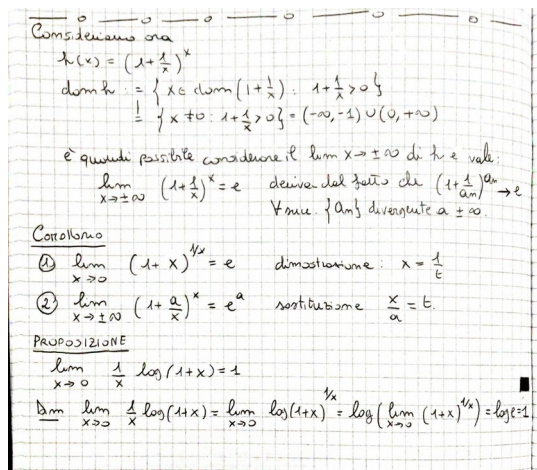 Consideriamo ora
h(x) = (1+1/x)^x
dom h := { x ∈ dom (1+1/x) : 1+1/x > 0 }
= { x ≠ 0 : 1+1/x > 0 } = (-∞, -1) ∪ (0, +∞)
è quindi possibile considerare il lim x→±∞ di h e vale:
lim x→±∞ (1+1/x)^x = e deriva dal fatto che (1+1/an)^an → e
∀ succ. {an} divergente a ±∞.
Corollario
① lim x→0 (1+x)^1/x = e dimostrazione : x = 1/t
② lim x→±∞ (1+a/x)^x = e^a sostituzione x/a = t.
PROPOSIZIONE
lim x→0 1/x log(1+x) = 1
Dm lim x→0 1/x log(1+x) = lim x→0 log(1+x)^1/x = log( lim x→0 (1+x)^1/x ) = log e = 1